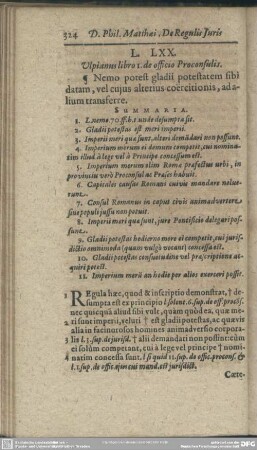 324 D. Phil. Matthæi, De Regulis Juris
L. LXX.
Ulpianus libro 1. de officio Proconsulis.
¶ Nemo potest gladii potestatem sibi
datam, vel cujus alterius coërcitionis, ad a-
lium transferre.
SUMMARIA.
1. L. nemo 70. ff. h. t. unde desumpta sit.
2. Gladii potestas est meri imperii.
3. Imperii meri quæ sunt, alteri demādari non possunt.
4. Imperium merum ei demum competit, cui nomina-
tim illud à lege vel à Principe concessum est.
5. Imperium merum olim Romæ præfectus urbi, in
provinciis verò Proconsul ac Præses habuit.
6. Capitales causas Romani cuivis mandare nolue-
runt.
7. Consul Romanus in caput civis animadvertere
sine populi jussu non potuit.
8. Imperii meri quæ sunt, jure Pontificio delegari pos-
sunt.
9. Gladii potestas hodierno more ei competit, cui juris-
dictio omnimoda (quam vulgò vocant) concessa est.
10. Gladii potestas consuetudine vel præscriptione ac-
quiri potest.
11. Imperium merū an hodie per alios exerceri possit.
1 REgula hæc, quod & inscriptio demonstrat, † de-
sumpta est ex principio l. solent. 6. sup. de off. procōs.
2 nec quicquā aliud sibi vult, quàm quòd ea, quæ me-
ri sunt imperii, veluti † est gladii potestas, ac quævis
alia in facinorosos homines animadversio corpora-
3 lis l. 3. sup. de jurisd. † alii demandari non possint: cùm
4 ei solùm competant, cui à lege vel principe † nomi-
natim concessa sunt. l. si quid 11. sup. de offic. procons. &
l. 1. sup. de offic. ejus cui mand. est jurisdict.
Cæte-